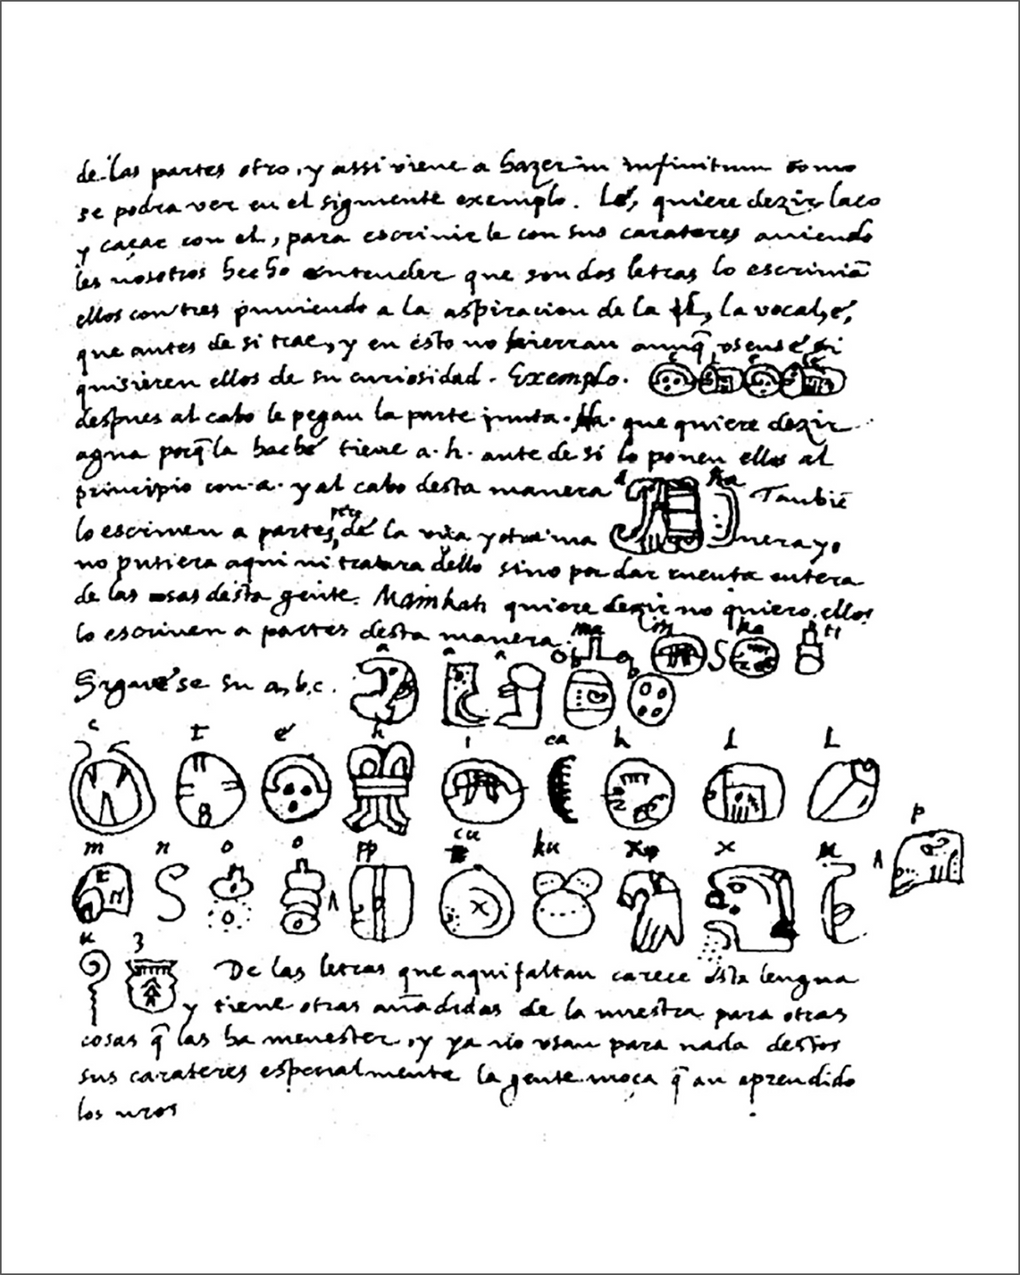 de las partes otro, y assi viene a hazer in infinitum como
se podra ver en el siguiente exemplo. Lé, quiere dezir laço
y caçar con el, para escrivirle con sus carateres aviendo
les nosotros hecho entender que son dos letras lo escriviã
ellos con tres puniendo a la aspiracion de la l, la vocal, é,
que antes de si trae, y en ésto no hierran aunq̃ usense é si
quisieren ellos de su curiosidad. Exemplo. e l e lé
despues al cabo le pegan la parte junta. Ha. que quiere dezir
agua porq̃ la haché tiene a. h. ante de si lo ponen ellos al
principio con a. y al cabo desta manera a ha Tambiẽ
lo escriven a partes, pero de la una y otra ma nera yo
no pusiera aqui ni tratara dello sino por dar cuenta entera
de las cosas desta gente. Mainkati quiere dezir no quiero, ellos
lo escriven a partes desta manera. ma i n ka ti
Siguese su a, b, c. a a a b b
c t é h i ca k l l
m n o o pp p cu ku x x u
u z De las letras que aqui faltan carece esta lengua
y tiene otras añadidas de la nuestra para otras
cosas q̃ las ha menester, y ya no usan para nada destos
sus carateres especialmente la gente moça q̃ an aprendido
los nros